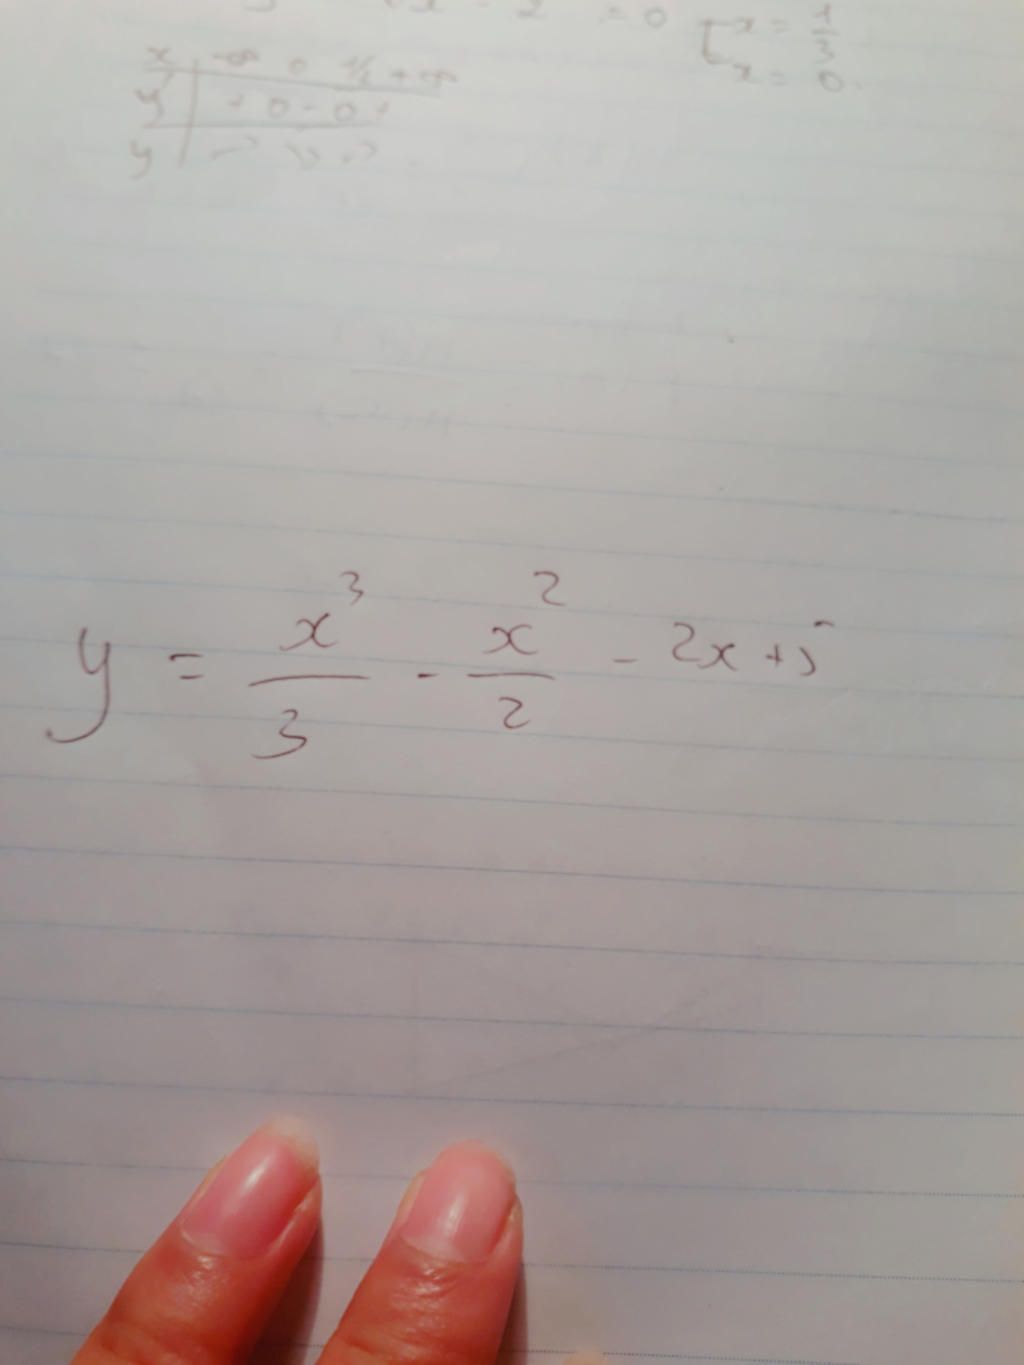 = 0 [ x = 1/3
x = 0.
x | -∞ 0 1/3 +∞
y' | + 0 - 0 +
y
y = x³/3 - x²/2 - 2x + 5